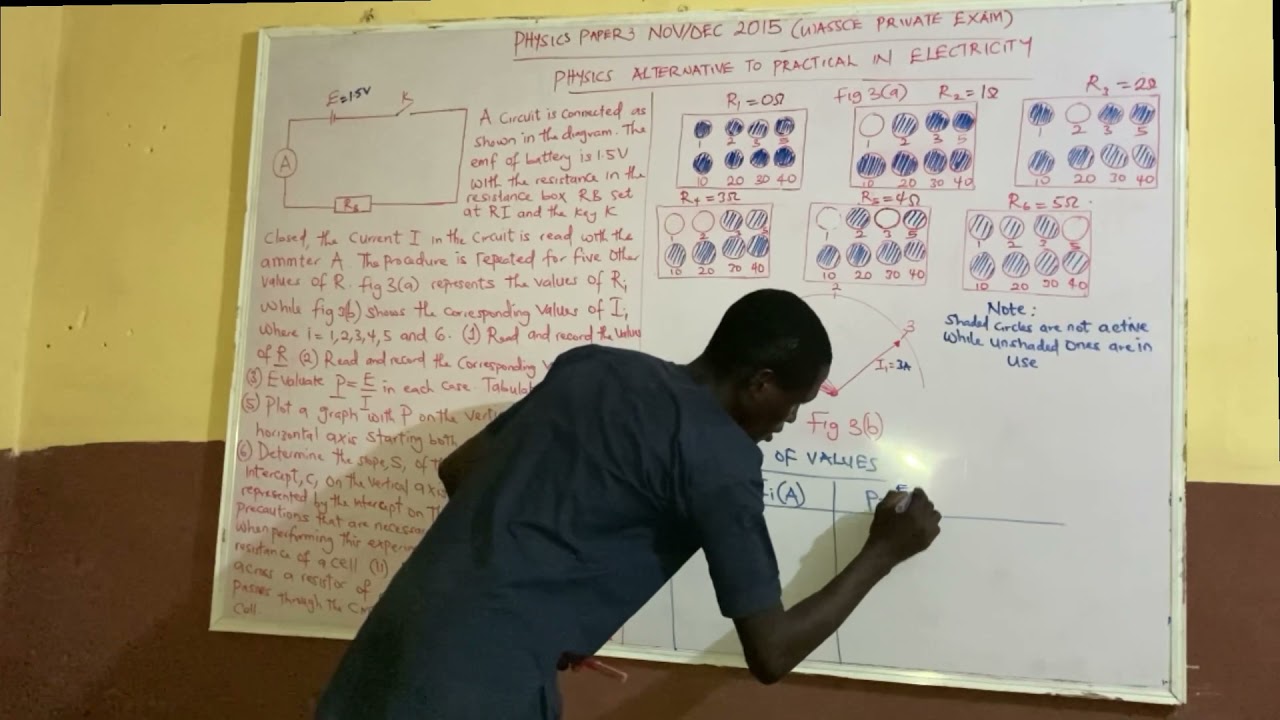 PHYSICS PAPER 3 NOV/DEC 2015 (WASSCE PRIVATE EXAM)
PHYSICS ALTERNATIVE TO PRACTICAL IN ELECTRICITY
E=1.5V
K
A
RB
A Circuit is connected as
shown in the diagram. The
emf of battery is 1.5V
with the resistance in the
resistance box RB set
at RI and the key K
Closed, the Current I in the Circuit is read with the
ammter A. The procedure is repeated for five other
values of R. fig 3(a) represents the values of Ri
while fig 3(b) shows the corresponding values of Ii
where i=1,2,3,4,5 and 6. (1) Read and record the values
of R (2) Read and record the Corresponding
(3) Evaluate P=E/I in each case.
(5) Plot a graph with P on the
horizontal axis starting both
(6) Determine the slope, S, of
Intercept, C, on the vertical axis
represented by the intercept on
Precautions that are
when performing this
resistance of a cell (11)
across a resistor of
passes through the
Cell.
R1=0Ω
1 2 3 5
10 20 30 40
fig 3(a)
R2=1Ω
1 2 3 5
10 20 30 40
R3=2Ω
1 2 3 5
10 20 30 40
R4=3Ω
1 2 3 5
10 20 30 40
R5=4Ω
1 2 3 5
10 20 30 40
R6=5Ω
1 2 3 5
10 20 30 40
2
3
I1=3A
Fig 3(b)
Note:
Shaded Circles are not active
while unshaded ones are in
use
OF VALUES
Ii(A)
P
E